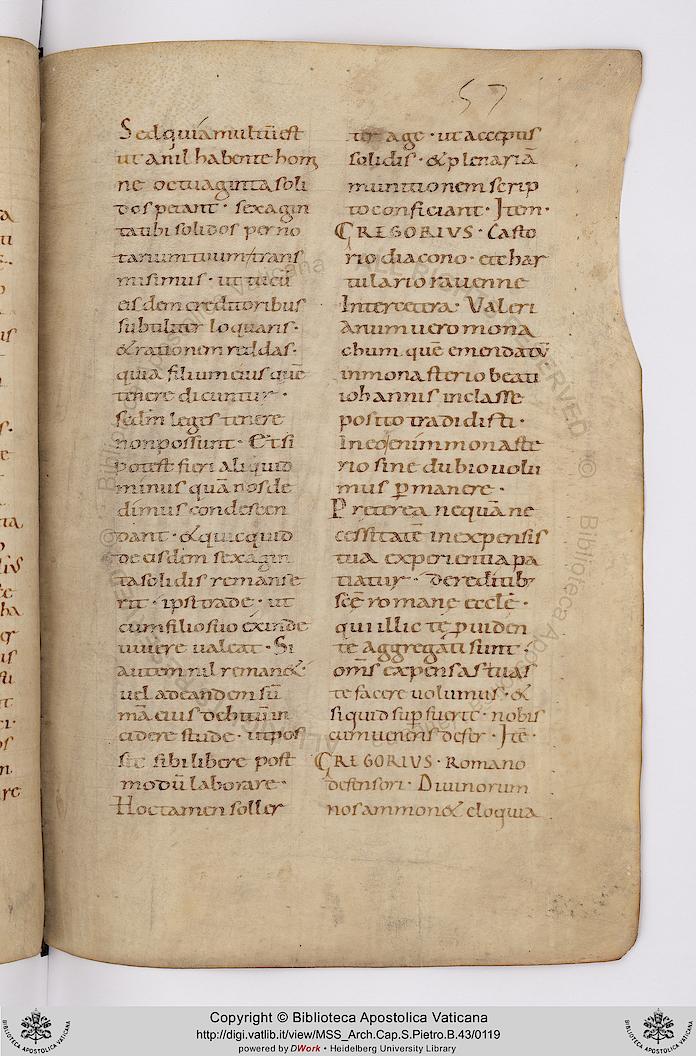 57
Sed quia multū est
ut a nil habente hom
ne octuaginta soli
dos petant · sexagin
ta ubi solidos per no
tarium tuum trans
misimus · ut tu cū
eisdem creditoribus
subtiliter loquaris ·
& rationem reddas ·
quia filium eius quē
tenere dicuntur ·
sedm leges tenere
non possunt · Et si
potest fieri aliquid
minus quā nos de
dimus condescen
dant · & quicquid
de eisdem sexagin
ta solidis remanse
rit · ipsi trade · ut
cum filio suo exinde
uiuere ualeat · Si
autem nil reman& ·
uel ad eandem sū
mā eius debitū in
cidere stude · ut pos
sit sibi libere post
modū laborare ·
Hoc tamen soller
ter age · ut acceptis
solidis · & plenariā
munitionem scrip
to conficiant · Item ·
GREGORIVS · Casto
rio diacono · et char
tulario rauenne
Inter cetera · Valeri
anum uero mona
chum quē emendatū
in monasterio beati
iohannis in classe
posito tradidisti ·
In eo enim monaste
rio sine dubio uolu
mus p̄manere ·
Preterea ne quā ne
cessitatē in expensis
tua experientia pa
tiatur · de reditib;
scē romane ecclē ·
qui illic te p̄uiden
te aggregati sunt ·
om̄s expensas tuas
te facere uolumus · &
si quid sup fuerit · nobis
cum ueneris defer · Itē ·
GREGORIVS · Romano
defensori · Diuinorum
nos ammon& eloquia
Copyright © Biblioteca Apostolica Vaticana
http://digi.vatlib.it/view/MSS_Arch.Cap.S.Pietro.B.43/0119
powered by DWork • Heidelberg University Library